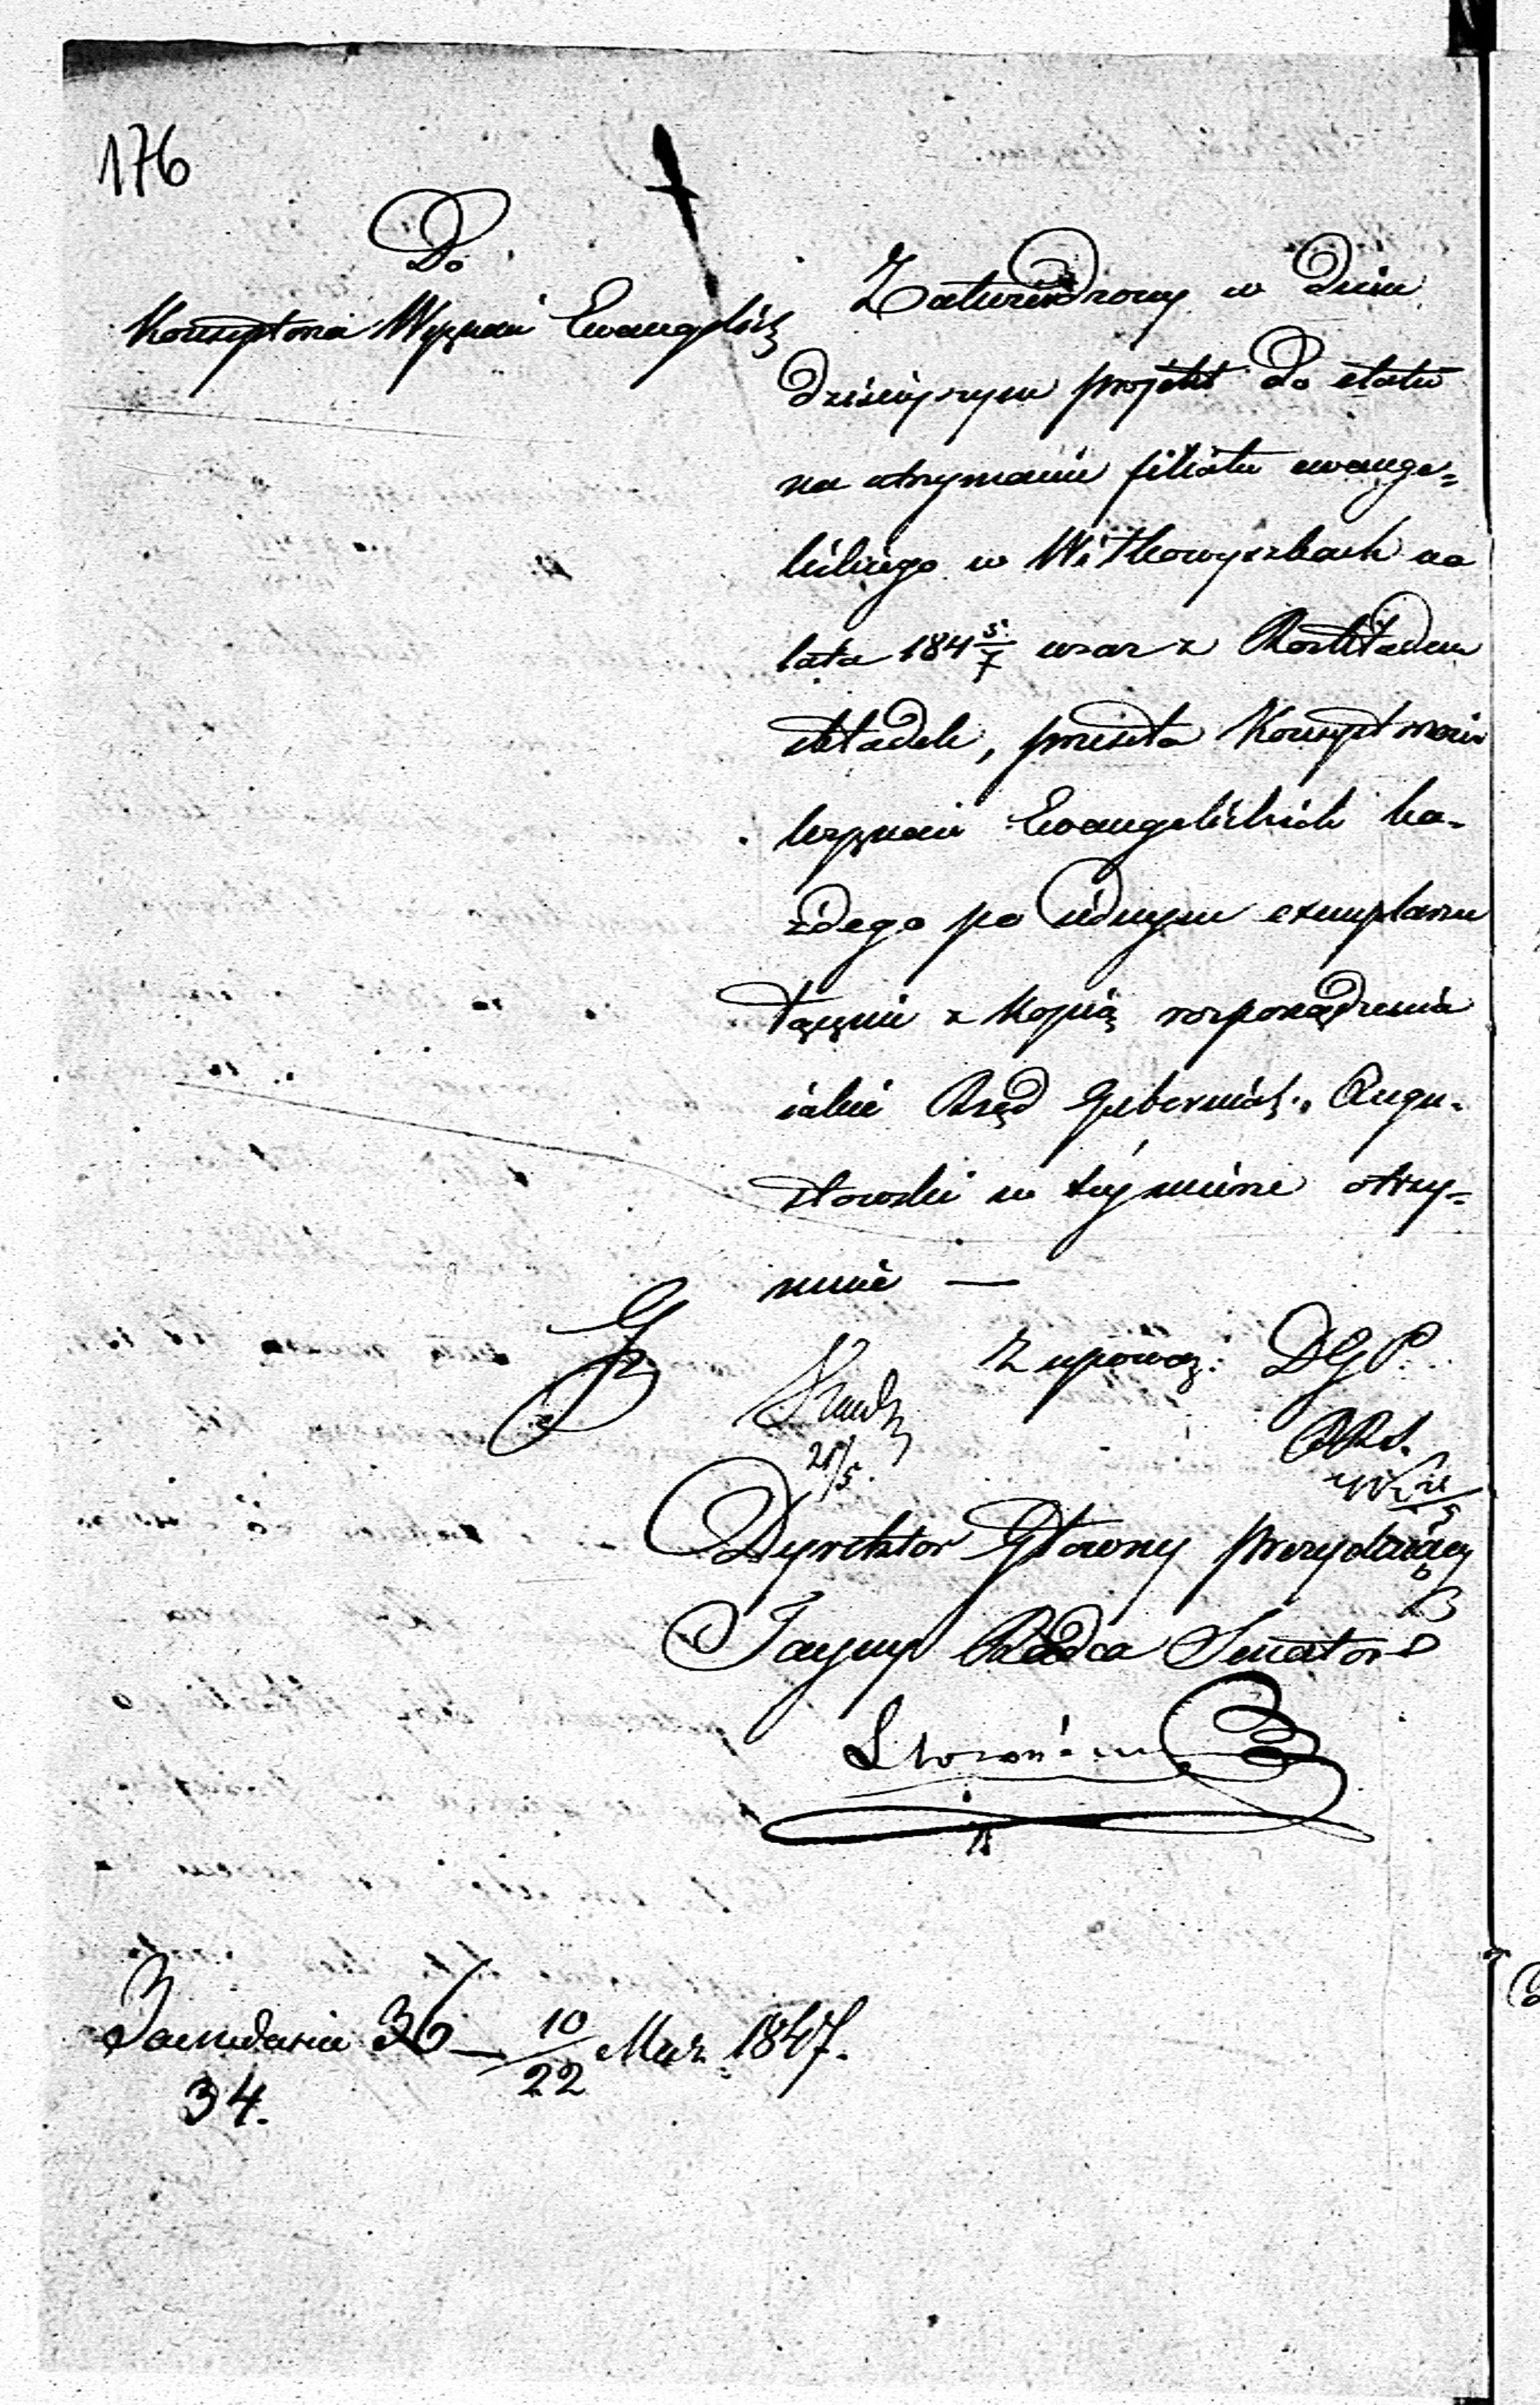 176
Do
Konsystorza Wyznań Ewangelick
Zatwierdzony w dniu
dzisiejszym projekt do etatu
na utrzymanie filiału ewange=
lickiego w Wiłkowyszkach na
lata 184 5/7 wraz z Rozkładem
składek, przesyła Konsystorzowi
Wyznań Ewangelickich ka-
żdego po jednym exemplarzu
łącznie z kopią rozporządzenia
jakie Rząd Gubernial: Augu-
stowski w tej mierze otrzy=
muje —
Z upoważ: DGP.
21/5.
Dyrektor Główny prezydujący
Tayny Radca Senator
36 — 10/22 Marz 1847.
34.